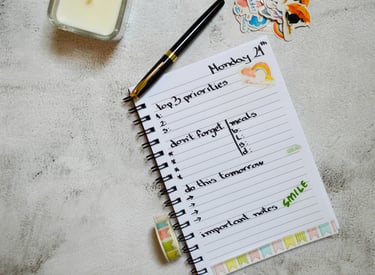 Monday 29th
top 3 priorities
1.
2.
3.
don't forget
meals
b.
l.
s.
d.
do this tomorrow
→
→
→
important notes
SMILE